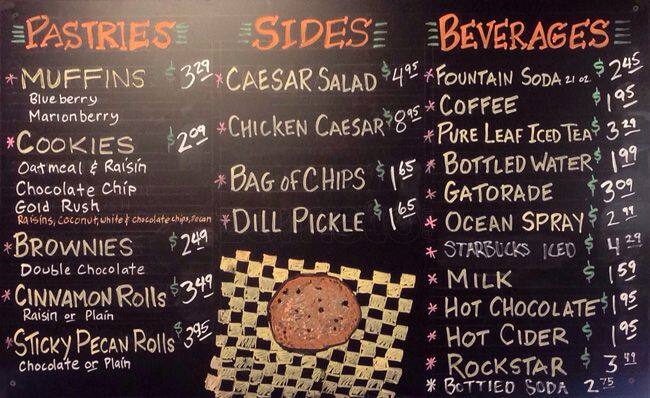 PASTRIES
* MUFFINS $3.29
Blueberry
Marionberry
* COOKIES $2.09
Oatmeal & Raisin
Chocolate Chip
Gold Rush
Raisins, Coconut, white & chocolate chips, Pecan
* BROWNIES $2.49
Double Chocolate
* CINNAMON ROLLS $3.49
Raisin or Plain
* STICKY PECAN ROLLS $3.95
Chocolate or Plain
SIDES
* CAESAR SALAD $4.95
* CHICKEN CAESAR $8.95
* BAG OF CHIPS $1.65
* DILL PICKLE $1.65
BEVERAGES
* FOUNTAIN SODA 21 oz. $2.45
* COFFEE $1.95
* PURE LEAF ICED TEA $3.29
* BOTTLED WATER $1.99
* GATORADE $3.09
* OCEAN SPRAY $2.99
* STARBUCKS ICED $4.29
* MILK $1.59
* HOT CHOCOLATE $1.95
* HOT CIDER $1.95
* ROCKSTAR $3.49
* BOTTLED SODA 2.75